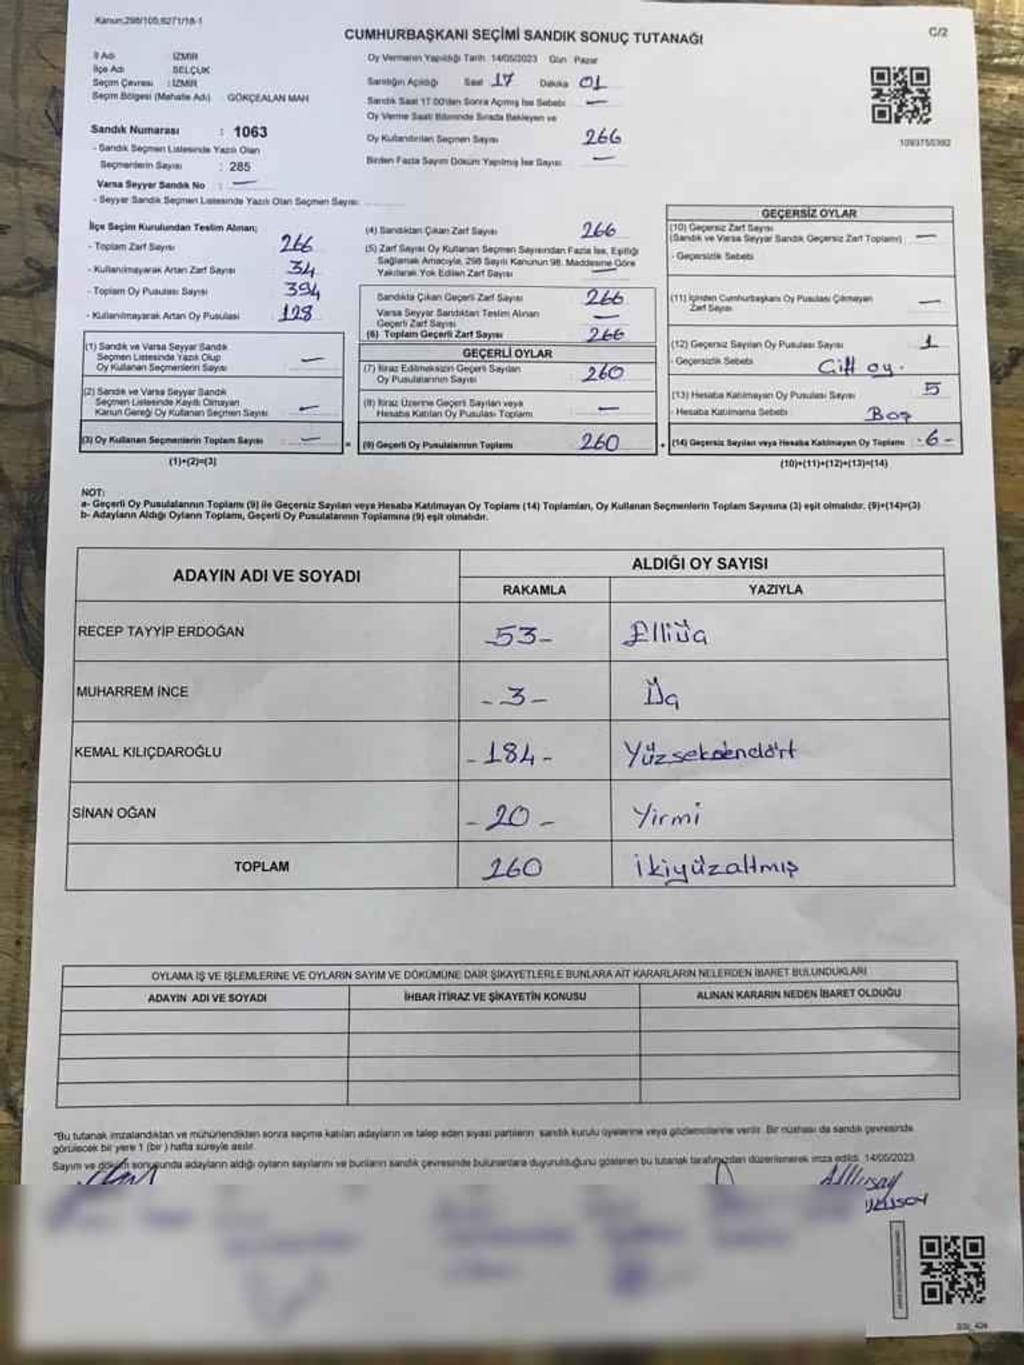 Kanun;298/105,6271/18-1
CUMHURBAŞKANI SEÇİMİ SANDIK SONUÇ TUTANAĞI
C/2
İl Adı İZMİR
İlçe Adı SELÇUK
Seçim Çevresi : İZMİR
Seçim Bölgesi (Mahalle Adı) GÖKÇEALAN MAH
Sandık Numarası : 1063
- Sandık Seçmen Listesinde Yazılı Olan
Seçmenlerin Sayısı : 285
Varsa Seyyar Sandık No : —
- Seyyar Sandık Seçmen Listesinde Yazılı Olan Seçmen Sayısı
Oy Vermenin Yapıldığı Tarih 14/05/2023 Gün Pazar
Sandığın Açıldığı Saat 17 Dakika 01
Sandık Saat 17.00'den Sonra Açmış İse Sebebi —
Oy Verme Saati Bitiminde Sırada Bekleyen ve
Oy Kullandırılan Seçmen Sayısı 266
Birden Fazla Sayım Döküm Yapılmış İse Sayısı —
1093755392
İlçe Seçim Kurulundan Teslim Alınan;
- Toplam Zarf Sayısı 266
- Kullanılmayarak Artan Zarf Sayısı 34
- Toplam Oy Pusulası Sayısı 394
- Kullanılmayarak Artan Oy Pusulası 128
(1) Sandık ve Varsa Seyyar Sandık
Seçmen Listesinde Yazılı Olup
Oy Kullanan Seçmenlerin Sayısı —
(2) Sandık ve Varsa Seyyar Sandık
Seçmen Listesinde Kayıtlı Olmayan
Kanun Gereği Oy Kullanan Seçmen Sayısı —
(3) Oy Kullanan Seçmenlerin Toplam Sayısı —
(1)+(2)=(3)
(4) Sandıktan Çıkan Zarf Sayısı 266
(5) Zarf Sayısı Oy Kullanan Seçmen Sayısından Fazla İse, Eşitliği
Sağlamak Amacıyla, 298 Sayılı Kanunun 98. Maddesine Göre
Yakılarak Yok Edilen Zarf Sayısı —
Sandıkta Çıkan Geçerli Zarf Sayısı 266
Varsa Seyyar Sandıktan Teslim Alınan
Geçerli Zarf Sayısı —
(6) Toplam Geçerli Zarf Sayısı 266
GEÇERLİ OYLAR
(7) İtiraz Edilmeksizin Geçerli Sayılan
Oy Pusulalarının Sayısı 260
(8) İtiraz Üzerine Geçerli Sayılan veya
Hesaba Katılan Oy Pusulası Toplamı —
= (9) Geçerli Oy Pusulalarının Toplamı 260
GEÇERSİZ OYLAR
(10) Geçersiz Zarf Sayısı
(Sandık ve Varsa Seyyar Sandık Geçersiz Zarf Toplamı) —
- Geçersizlik Sebebi
(11) İçinden Cumhurbaşkanı Oy Pusulası Çıkmayan
Zarf Sayısı —
(12) Geçersiz Sayılan Oy Pusulası Sayısı 1
- Geçersizlik Sebebi Çift oy.
(13) Hesaba Katılmayan Oy Pusulası Sayısı 5
- Hesaba Katılmama Sebebi Boş
+ (14) Geçersiz Sayılan veya Hesaba Katılmayan Oy Toplamı -6-
(10)+(11)+(12)+(13)=(14)
NOT:
a- Geçerli Oy Pusulalarının Toplamı (9) ile Geçersiz Sayılan veya Hesaba Katılmayan Oy Toplamı (14) Toplamları, Oy Kullanan Seçmenlerin Toplam Sayısına (3) eşit olmalıdır. (9)+(14)=(3)
b- Adayların Aldığı Oyların Toplamı, Geçerli Oy Pusulalarının Toplamına (9) eşit olmalıdır.
ADAYIN ADI VE SOYADI
ALDIĞI OY SAYISI
RAKAMLA YAZIYLA
RECEP TAYYİP ERDOĞAN -53- Elliüç
MUHARREM İNCE -3- Üç
KEMAL KILIÇDAROĞLU -184- Yüzseksendört
SİNAN OĞAN -20- Yirmi
TOPLAM 260 ikiyüzaltmış
OYLAMA İŞ VE İŞLEMLERİNE VE OYLARIN SAYIM VE DÖKÜMÜNE DAİR ŞİKAYETLERLE BUNLARA AİT KARARLARIN NELERDEN İBARET BULUNDUKLARI
ADAYIN ADI VE SOYADI İHBAR İTİRAZ VE ŞİKAYETİN KONUSU ALINAN KARARIN NEDEN İBARET OLDUĞU
*Bu tutanak imzalandıktan ve mühürlendikten sonra seçime katılan adayların ve talep eden siyasi partilerin sandık kurulu üyelerine veya gözlemcilerine verilir. Bir nüshası da sandık çevresinde
görülecek bir yere 1 (bir) hafta süreyle asılır.
Sayım ve döküm sonucunda adayların aldığı oyların sayılarını ve bunların sandık çevresinde bulunanlara duyurulduğunu gösteren bu tutanak tarafımızdan düzenlenerek imza edildi. 14/05/2023